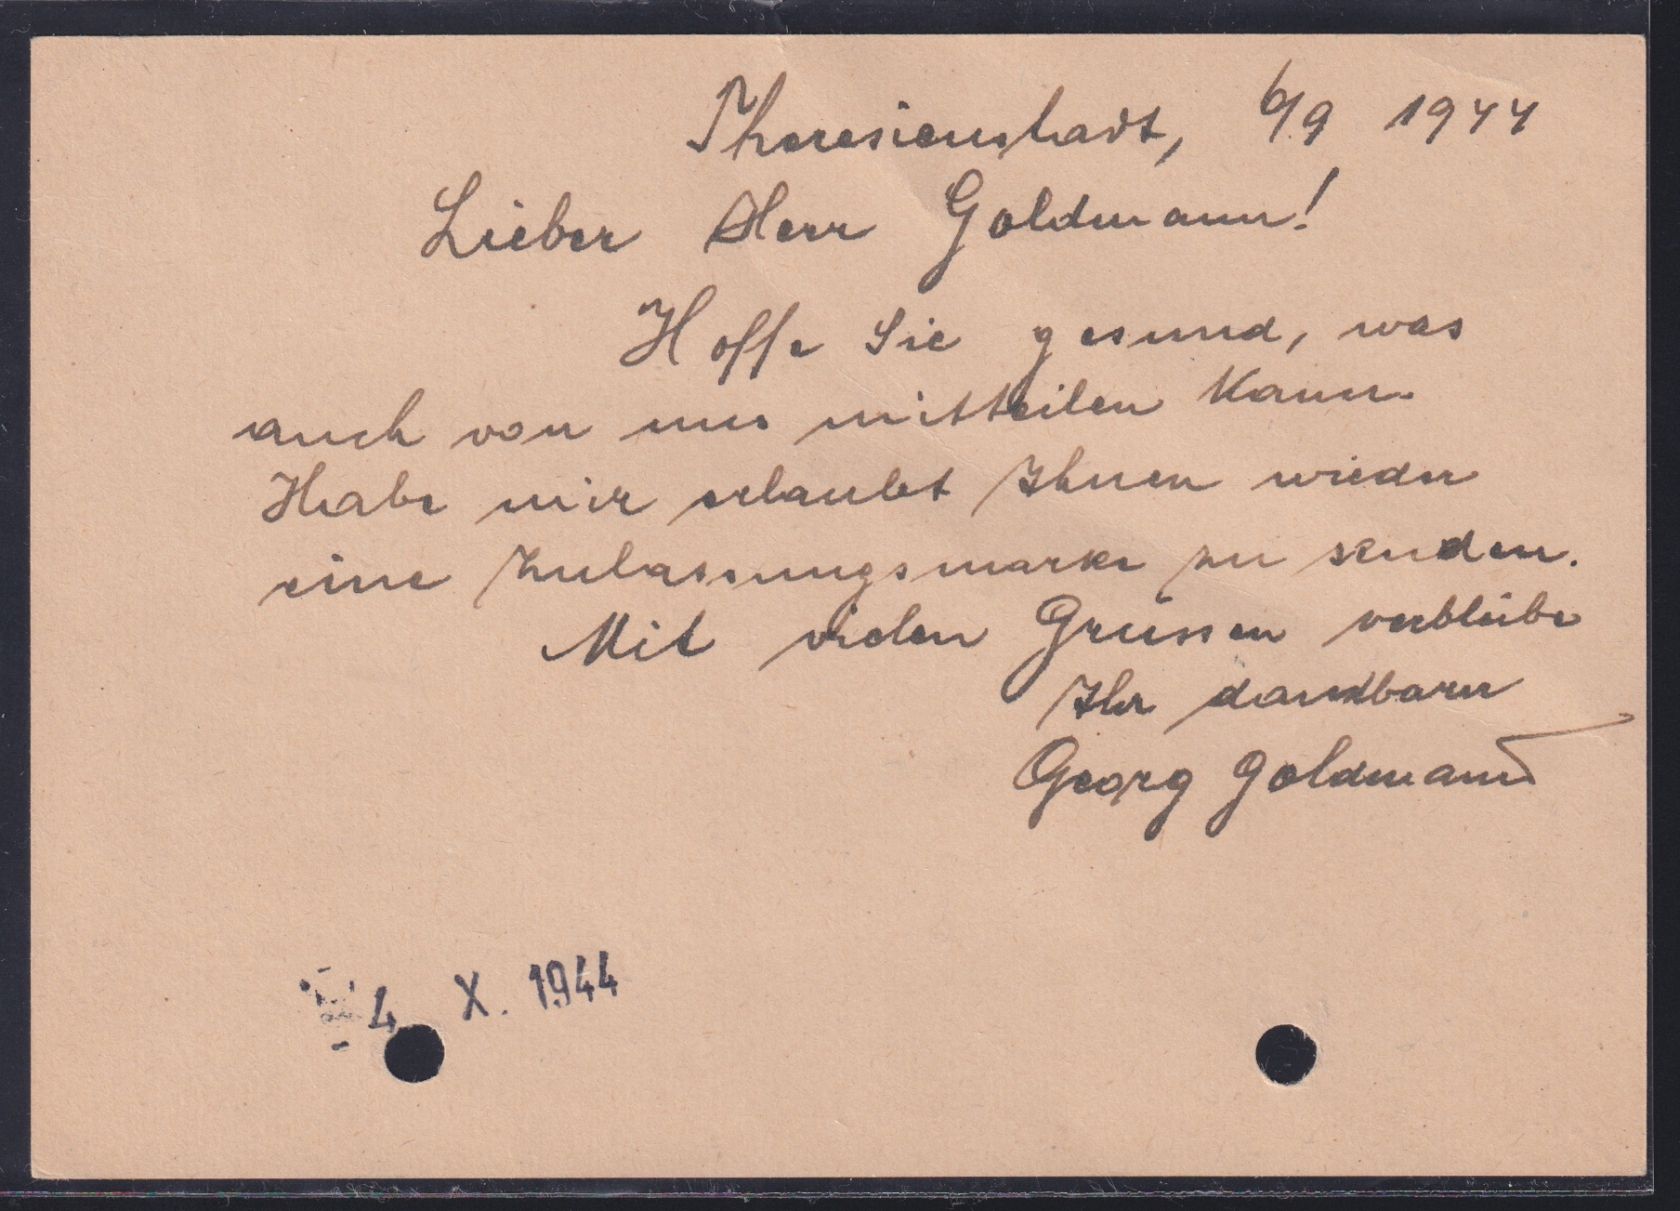 Theresienstadt, 6/9 1944
Lieber Herr Goldmann!
Hoffe Sie gesund, was
auch von uns mitteilen kann.
Habe mir erlaubt Ihnen wieder
eine Zulassungsmarke zu senden.
Mit vielen Grüssen verbleibe
Ihr dankbarer
Georg Goldmann
4. X. 1944